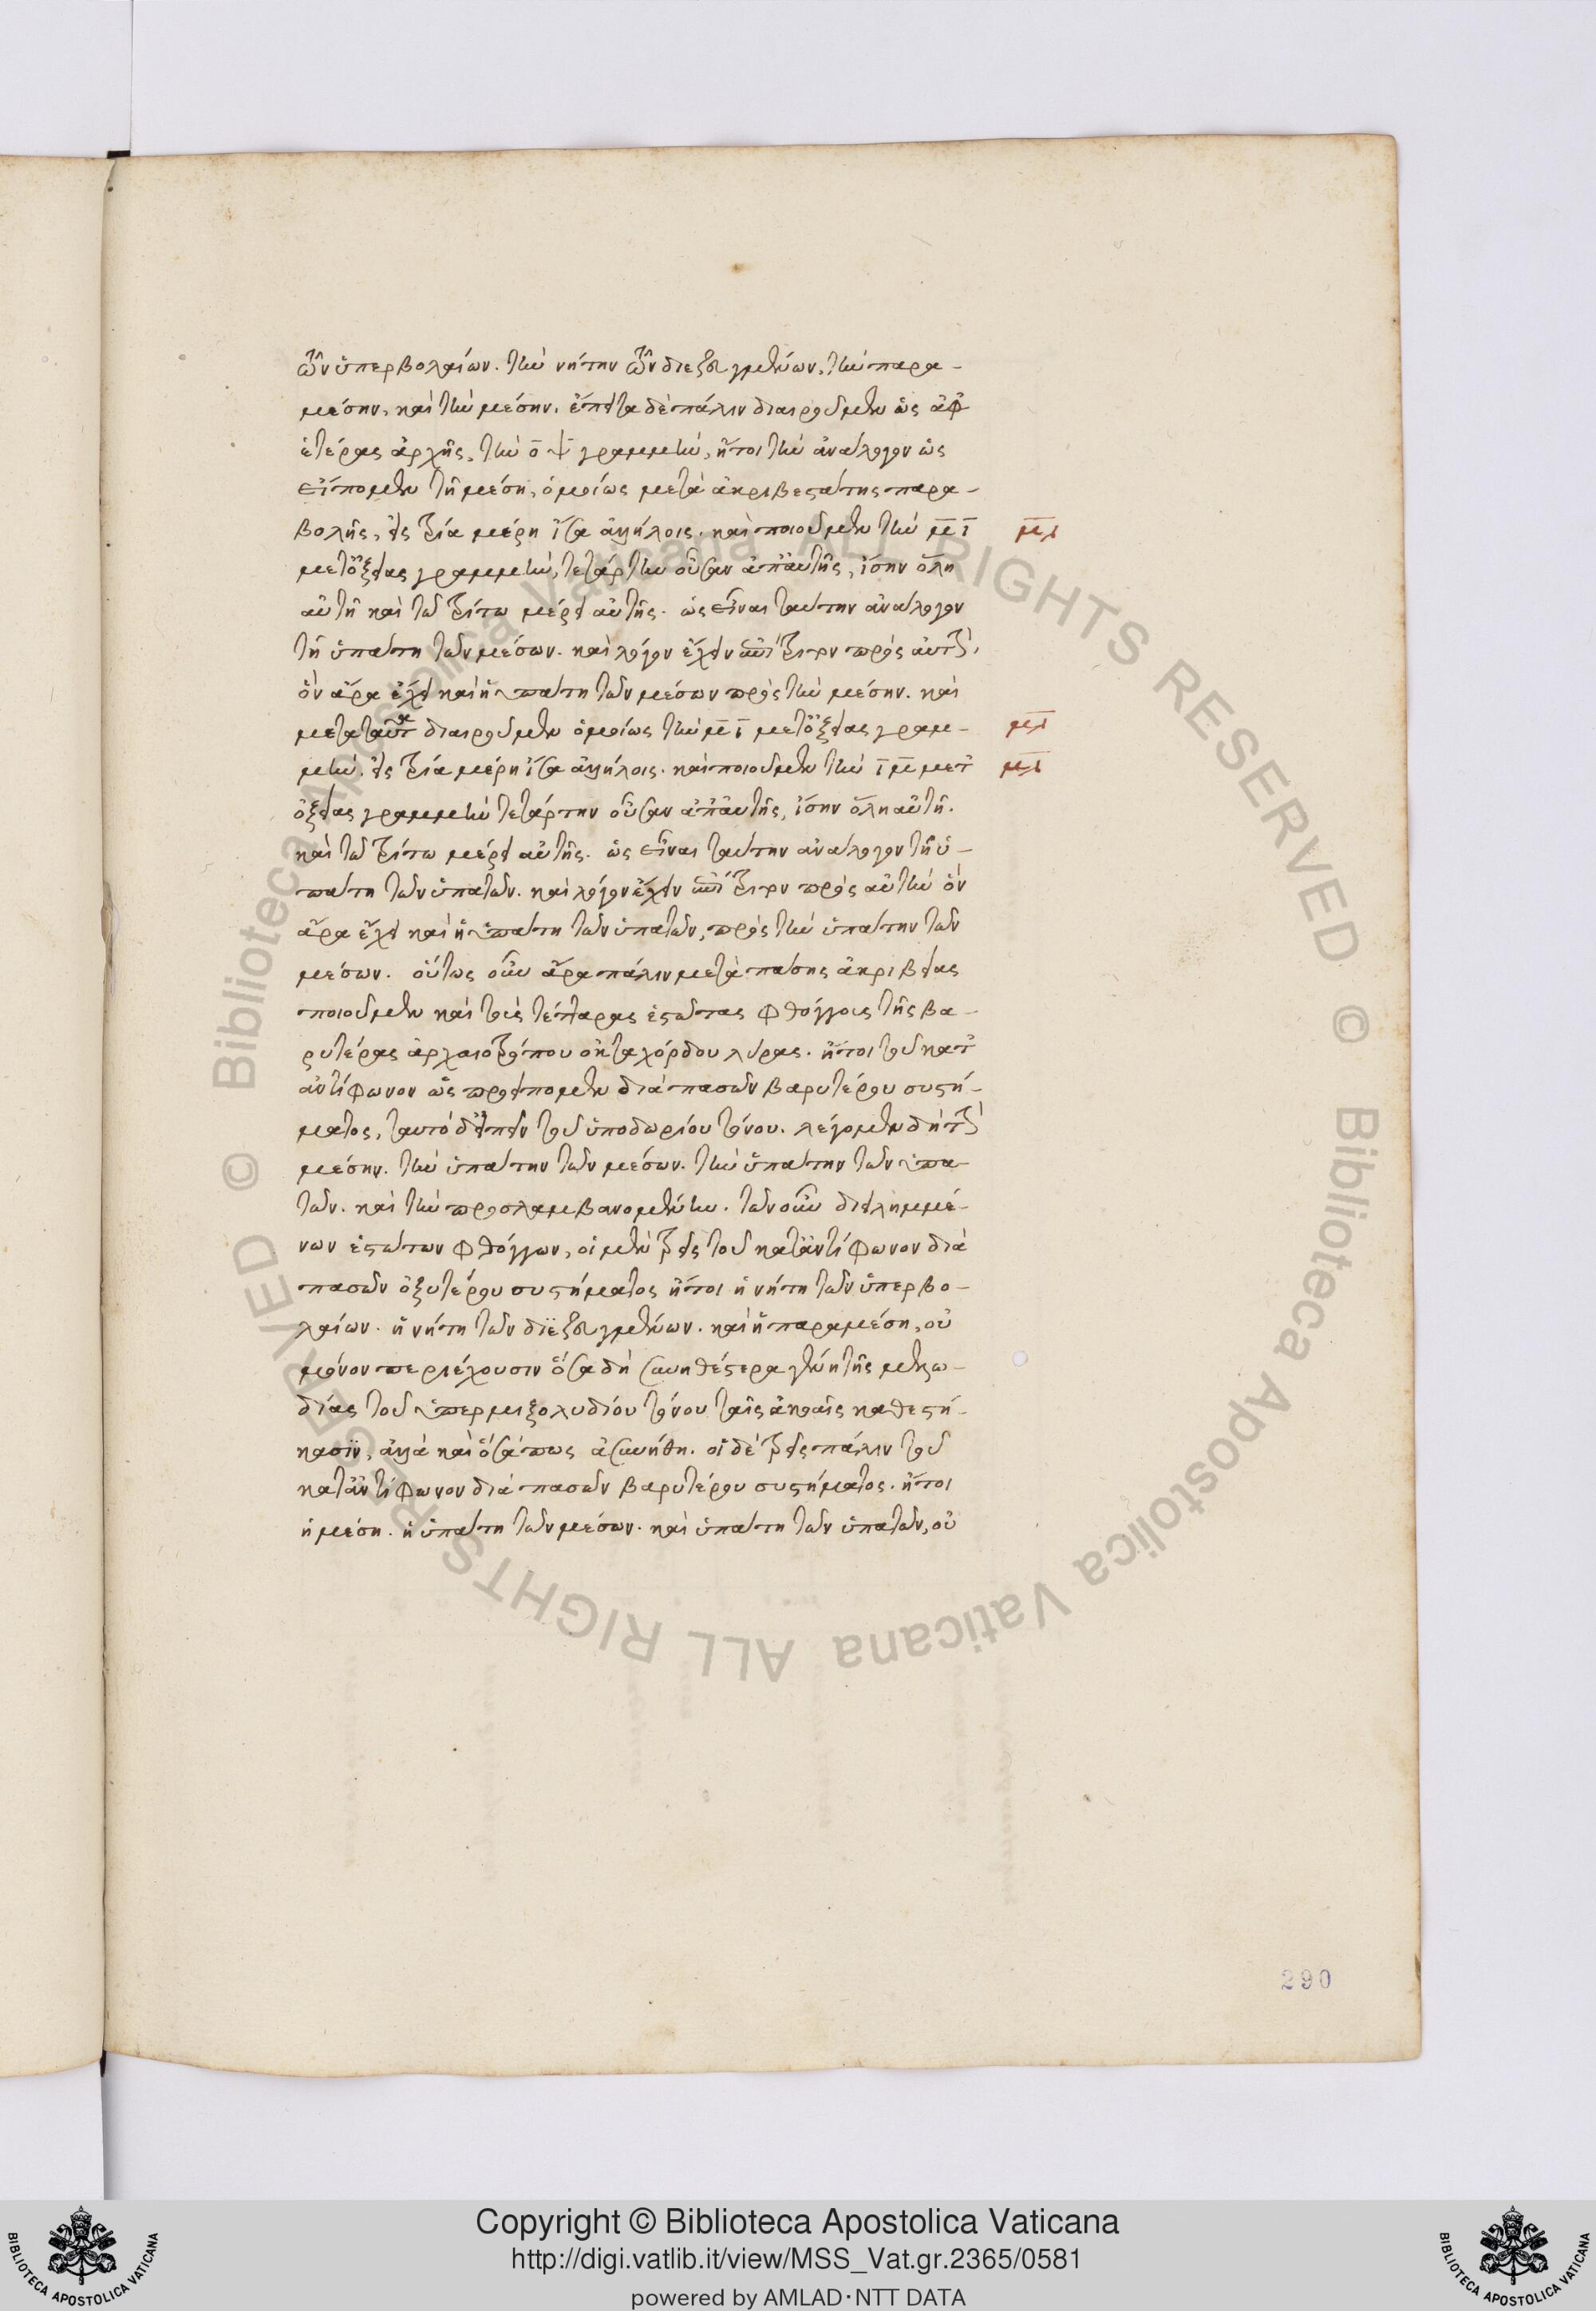 τῶν ὑπερβολαίων. τὴν νήτην τῶν διεζευγμένων, τὴν παρα-
μέσην, καὶ τὴν μέσην. ἔπειτα δὲ πάλιν διαιροῦμεν ὡς ἀφ'
ἑτέρας ἀρχῆς, τὴν ο ψ γραμμὴν, ἤτοι τὴν ἀνάλογον ὡς
εἴπομεν τῇ μέσῃ, ὁμοίως μετὰ ἀκριβεστάτης παρα-
βολῆς, εἰς τρία μέρη ἴσα ἀλλήλοις. καὶ ποιοῦμεν τὴν μ ι
μετ' ὀξείας γραμμὴν, τετάρτην οὖσαν ἀπ' αὐτῆς, ἴσην ὅλη
αὐτῇ καὶ τῶ τρίτω μέρει αὐτῆς. ὡς εἶναι ταύτην ἀνάλογον
τῇ ὑπάτη τῶν μέσων. καὶ λόγον ἔχειν ἐπίτριτον πρὸς αὐτὴν,
ὃν ἄρα ἔχει καὶ ἡ ὑπάτη τῶν μέσων πρὸς τὴν μέσην. καὶ
μετὰ ταῦτα διαιροῦμεν ὁμοίως τὴν μ ι μετ' ὀξείας γραμ-
μὴν. εἰς τρία μέρη ἴσα ἀλλήλοις. καὶ ποιοῦμεν τὴν ι μ μετ'
ὀξείας γραμμὴν τετάρτην οὖσαν ἀπ' αὐτῆς, ἴσην ὅλη αὐτῇ.
καὶ τῶ τρίτω μέρει αὐτῆς. ὡς εἶναι ταύτην ἀνάλογον τῇ ὑ-
πάτη τῶν ὑπατῶν. καὶ λόγον ἔχειν ἐπίτριτον πρὸς αὐτὴν ὃν
ἄρα ἔχει καὶ ἡ ὑπάτη τῶν ὑπατῶν, πρὸς τὴν ὑπάτην τῶν
μέσων. οὕτως οὖν ἄρα πάλιν μετὰ πάσης ἀκριβείας
ποιοῦμεν καὶ τοὺς τέτταρας ἑστῶτας φθόγγους τῆς βα-
ρυτέρας ἀρχαιοτρόπου ὀκταχόρδου λύρας. ἤτοι τοῦ κατ'
ἀντίφωνον ὡς προείπομεν διὰ πασῶν βαρυτέρου συστή-
ματος, ταυτὸ δ' εἰπεῖν τοῦ ὑποδωρίου τόνου. λέγομεν δὴ τὴν
μέσην. τὴν ὑπάτην τῶν μέσων. τὴν ὑπάτην τῶν ὑπα-
τῶν. καὶ τὴν προσλαμβανομένην. τῶν οὖν διειλημμέ-
νων ἑστώτων φθόγγων, οἱ μὲν τρεῖς τοῦ κατ' ἀντίφωνον διὰ
πασῶν ὀξυτέρου συστήματος ἤτοι ἡ νήτη τῶν ὑπερβο-
λαίων. ἡ νήτη τῶν διεζευγμένων. καὶ ἡ παραμέση, οὐ
μόνον περιέχουσιν ὅσα δὴ συνηθέστερα γένη τῆς μελω-
δίας τοῦ ὑπερμιξολυδίου τόνου ταῖς ἀκοαῖς καθεστή-
κασιν, ἀλλὰ καὶ ὅσά πως ἀσυνήθη. οἱ δὲ τρεῖς πάλιν τοῦ
κατ' ἀντίφωνον διὰ πασῶν βαρυτέρου συστήματος. ἤτοι
ἡ μέση. ἡ ὑπάτη τῶν μέσων. καὶ ὑπάτη τῶν ὑπατῶν, οὐ
290
Copyright © Biblioteca Apostolica Vaticana
http://digi.vatlib.it/view/MSS_Vat.gr.2365/0581
powered by AMLAD·NTT DATA
BIBLIOTECA APOSTOLICA VATICANA
BIBLIOTECA APOSTOLICA VATICANA
© Biblioteca Apostolica Vaticana ALL RIGHTS RESERVED
© Biblioteca Apostolica Vaticana ALL RIGHTS RESERVED